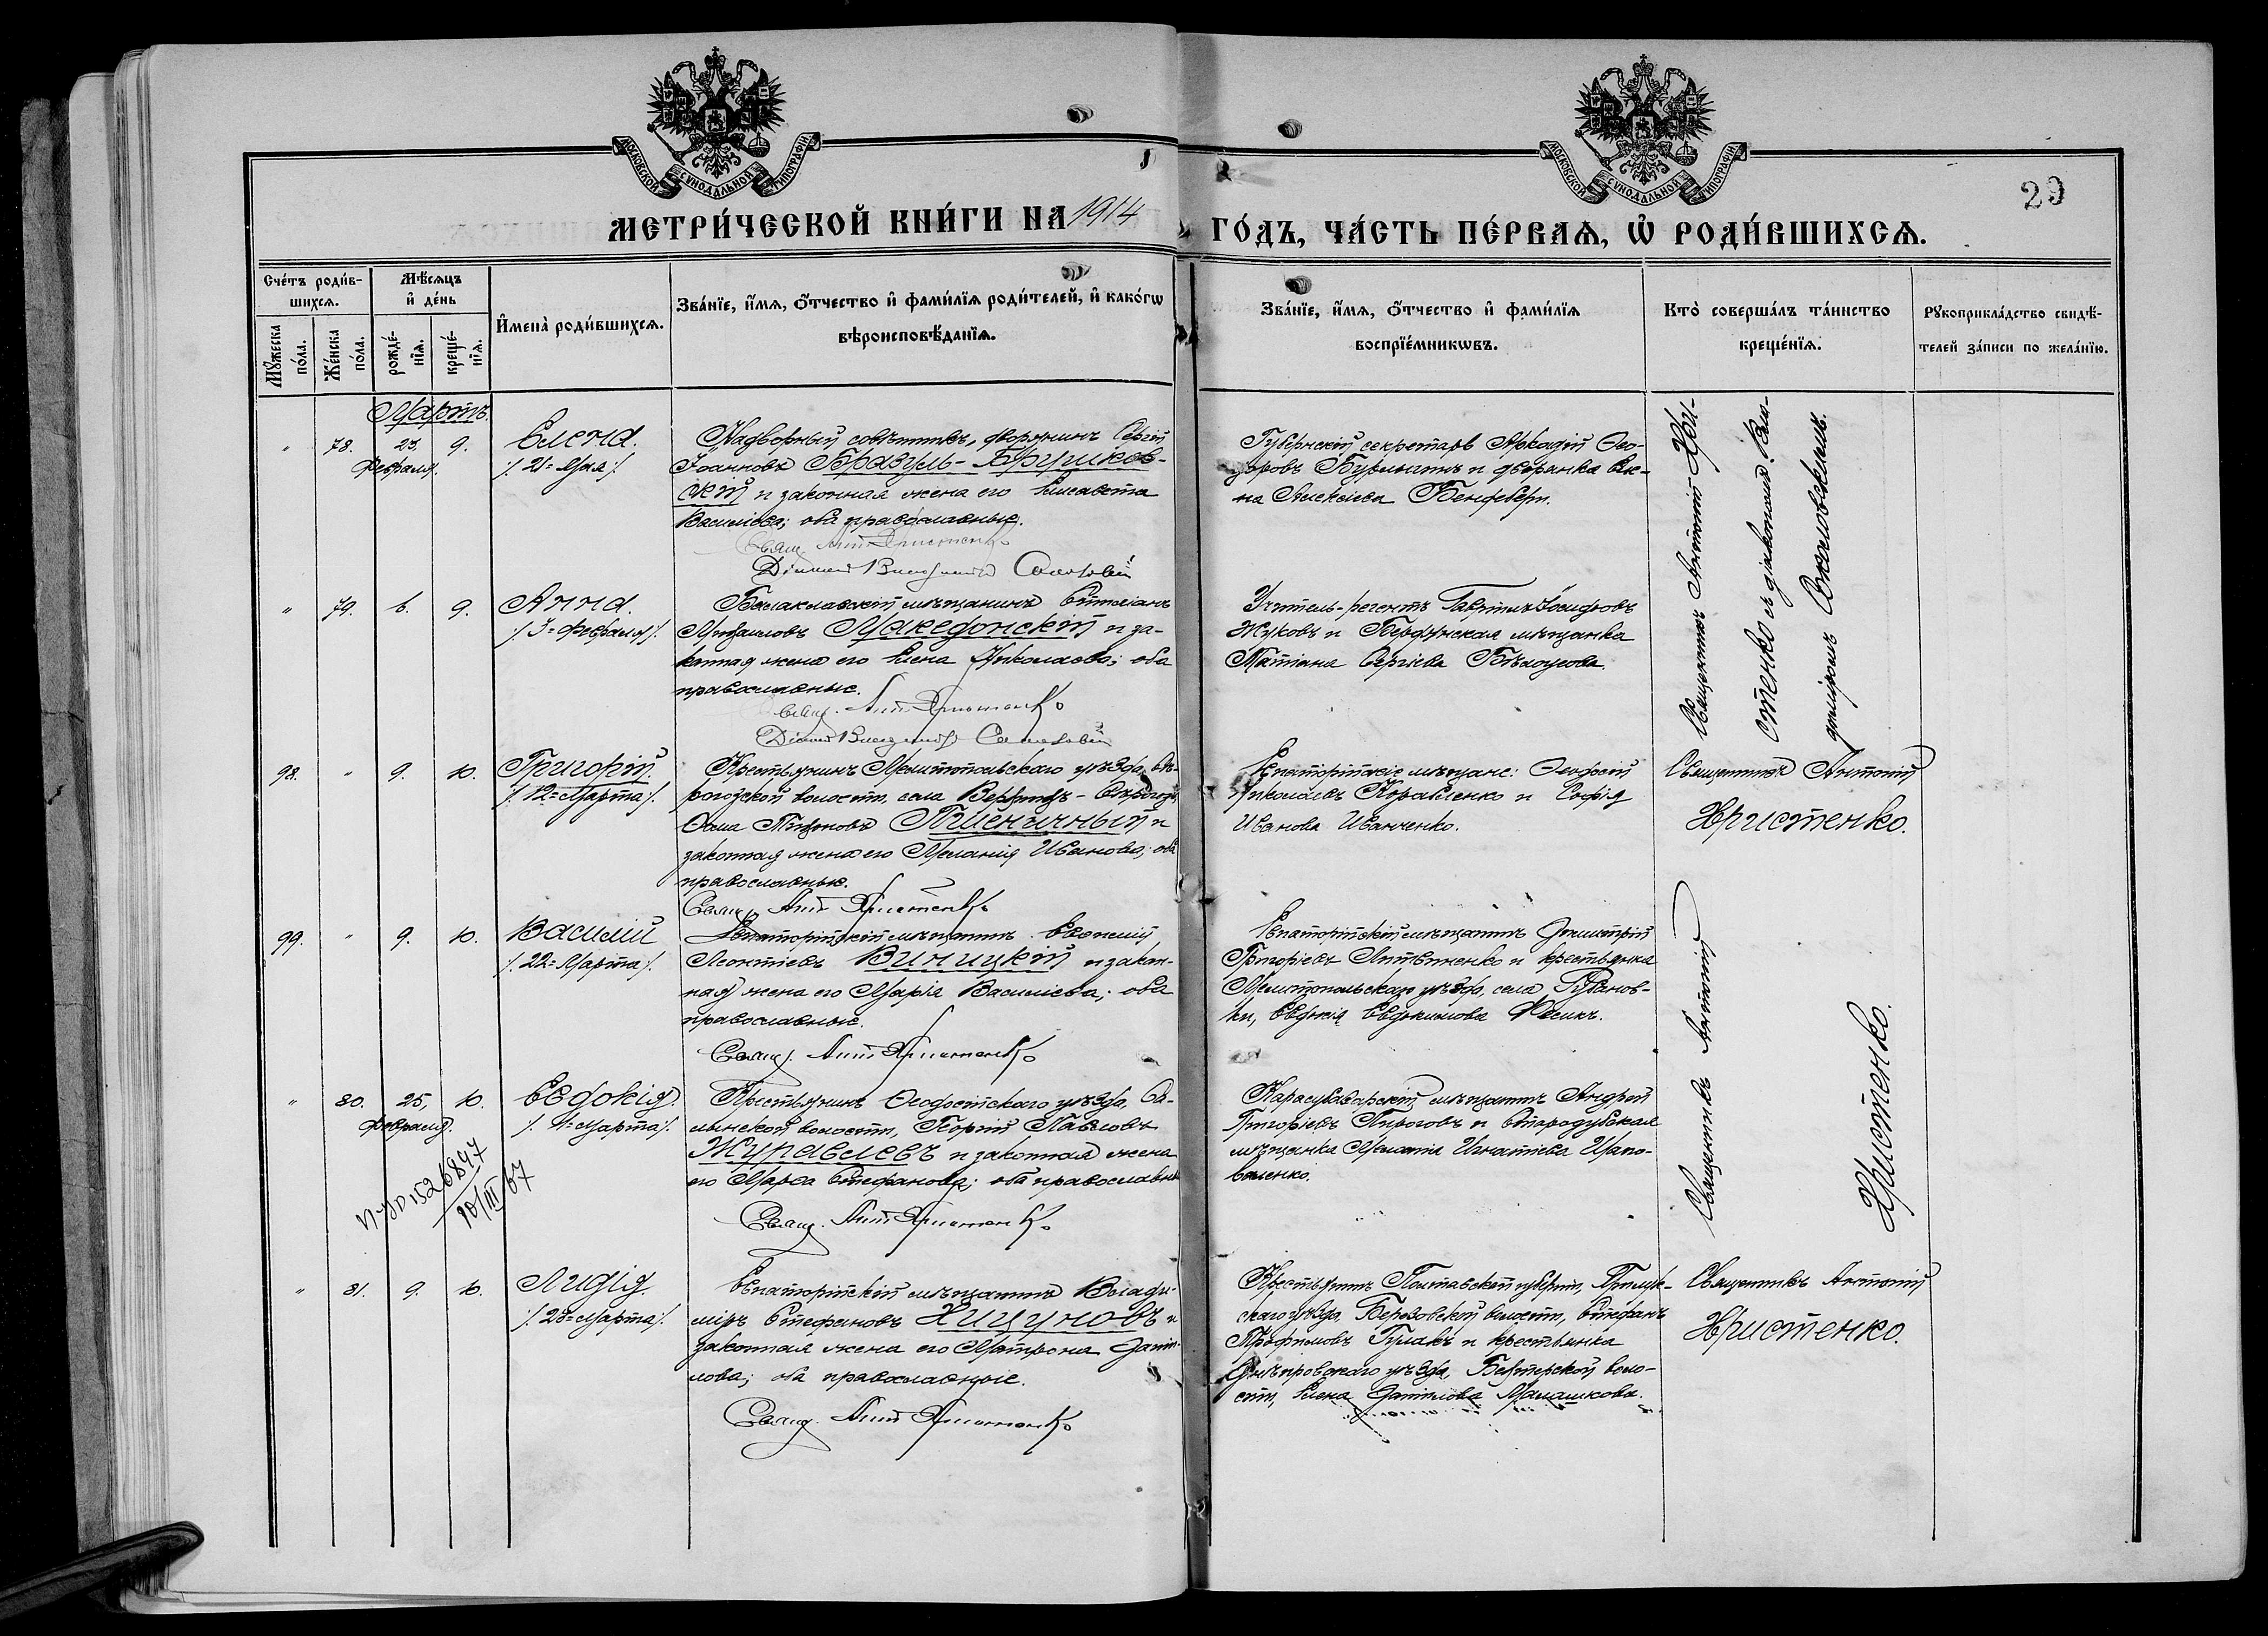 МОСКОВСКОЙ СѴНОДАЛЬНОЙ ТИПОГРАФІИ
МОСКОВСКОЙ СѴНОДАЛЬНОЙ ТИПОГРАФІИ
29
МЕТРИ́ЧЕСКОЙ КНИ́ГИ НА 1914 ГО́ДЪ, ЧА́СТЬ ПЕ́РВАѦ, Ѡ РОДИ́ВШИХСѦ.
Сче́тъ роди́в-
шихсѧ.
Мꙋ́жеска по́ла.
Же́нска по́ла.
Мѣ́сѧцъ
и҆ де́нь
рожде́-
нїѧ.
креще́-
нїѧ.
И҆мена̀ роди́вшихсѧ.
Зва́нїе, и҆́мѧ, ѻ҆́тчество и҆ фами́лїѧ роди́телей, и҆ како́гѡ
вѣроисповѣ́данїѧ.
Зва́нїе, и҆́мѧ, ѻ҆́тчество и҆ фами́лїѧ
воспрїе́мникѡвъ.
Кто̀ соверша́лъ та́инство
креще́нїѧ.
Рꙋкоприкла́дство свидѣ́-
телей за́писи по жела́нїю.
Мартъ.
" 78. 23, 9.
Февраля.
Елена.
/. 21 = Мая /.
Надворный совѣтникъ, дворянинъ Сергій
Іоанновъ Бразуль-Брушков-
скій и законная жена его Елисавета
Васильева; оба православные.
Свящ. Ант. Христенко
Губернскій секретарь Аркадій Ѳео-
доровъ
и дворянка
на Алексіева
Священникъ Антоній Хри-
стенко съ діакономъ Вла-
диміромъ
" 79. 6. 9.
Анна.
/. 3 = Февраля /.
Балаклавскій мѣщанинъ
Михаиловъ Македонскій и за-
конная жена его Елена Николаева; оба
православные.
Свящ. Ант. Христенко
Учитель-регентъ Гавріилъ Іосифовъ
Жуковъ и Бердянская мѣщанка
Татіана Сергіева Бѣлоусова.
98. " 9. 10.
Григорій.
/. 12 = Марта /.
Крестьянинъ Мелитопольскаго уѣзда, Сѣ-
рогозской волости, села Верхнихъ-Сѣрогозъ,
Ѳома Пшеничный и
законная жена его Меланія Иванова; оба
православные.
Свящ. Ант. Христенко
Евпаторійскіе мѣщане: Ѳеодосій
Николаевъ Коваленко и Софія
Иванова Иванченко.
Священникъ Антоній
Христенко.
99. " 9. 10.
Василій
/. 22 = Марта /.
Евпаторійскій мѣщанинъ
Леонтіевъ Виницкій и закон-
ная жена его Марія Васильева; оба
православные.
Свящ. Ант. Христенко
Евпаторійскій мѣщанинъ Димитрій
Григоріевъ Литвиненко и крестьянка
Мелитопольскаго уѣзда, села Рубанов-
ки, Евдокія Евдокимова
Священникъ Антоній
Христенко.
" 80. 25, 10.
Февраля.
Евдокія.
/. 1 = Марта /.
Крестьянинъ Ѳеодосійскаго уѣзда,
волости, Георгій Павловъ
Журавлевъ и законная жена
его Марѳа Стефанова; оба православные
Свящ. Ант. Христенко
Карасубазарскій мѣщанинъ Андрей
Григоріевъ Пироговъ и Стародубская
мѣщанка Меланія Игнатіева Шапо-
валенко.
10/III 67
" 81. 9. 10.
Лидія.
/. 23 = Марта /.
Евпаторійскій мѣщанинъ Влади-
міръ Стефановъ Хицуновъ и
законная жена его Матрона Даніи-
лова; оба православные.
Свящ. Ант. Христенко
Крестьянинъ Полтавской губерніи, Прилук-
скаго уѣзда, Березовской волости, Стефанъ
Трофимовъ Гулакъ и крестьянка
Днѣпровскаго уѣзда, воло-
сти, Елена Даніилова Малашкова.
Священникъ Антоній
Христенко.